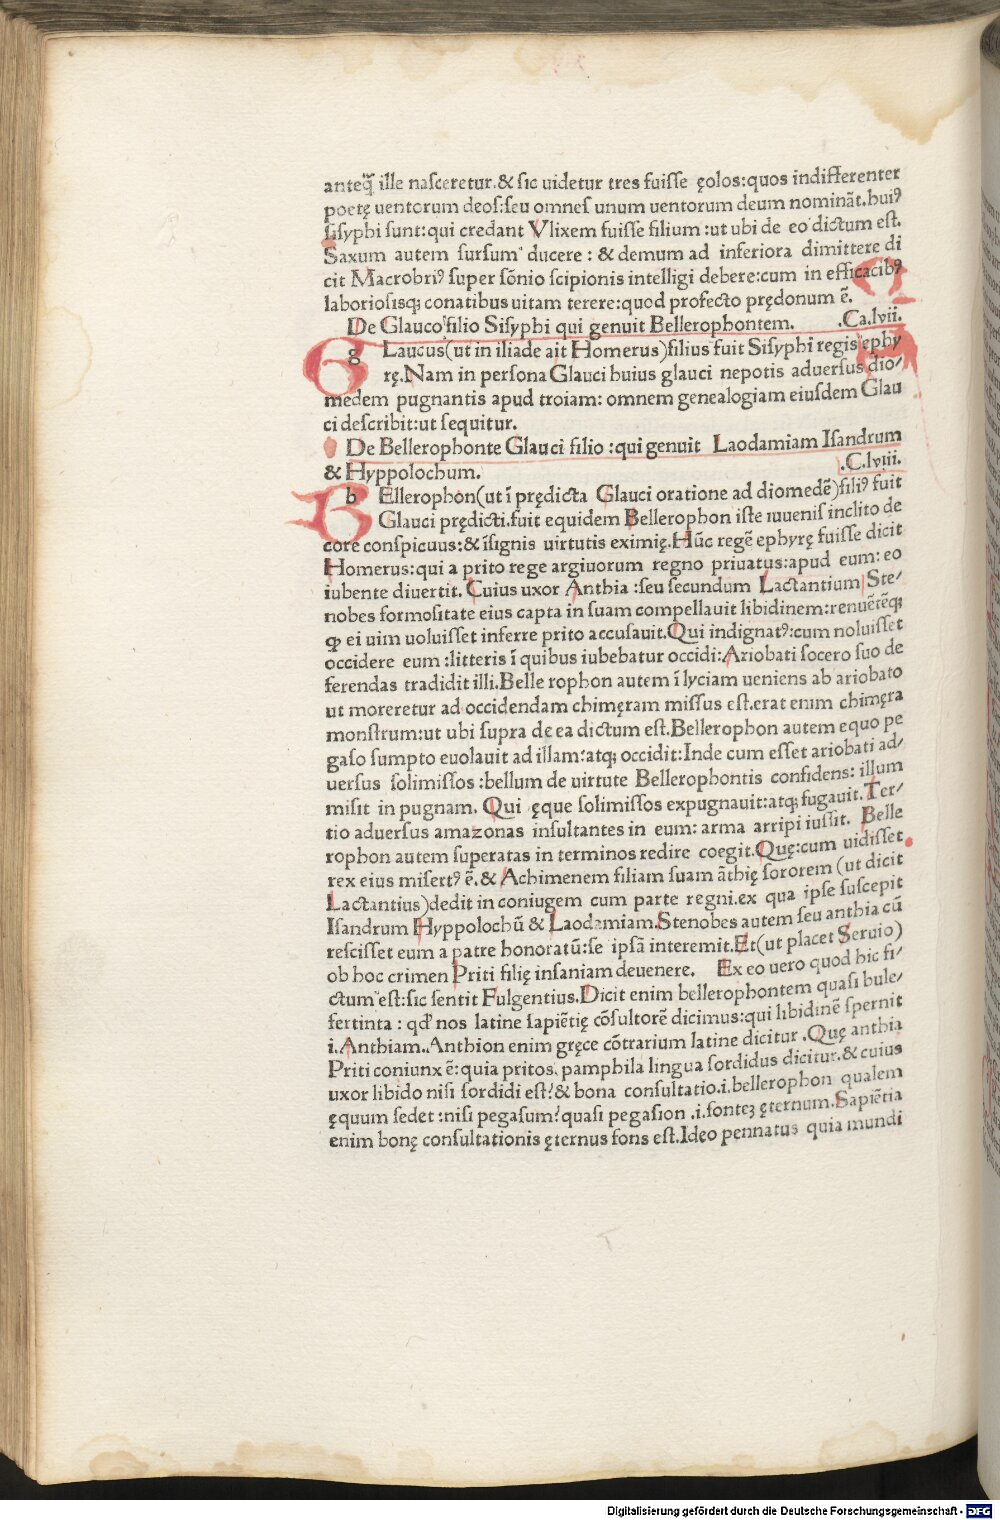 anteq̃ ille naſceretur.& ſic uidetur tres fuiſſe ęolos:quos indifferenter
poetę uentorum deos:ſeu omneſ unum uentorum deum nominãt.huiꝰ
ſiſyphi ſunt:qui credant Vlixem fuiſſe filium :ut ubi de eo dictum eſt.
Saxum autem ſurſum ducere : & demum ad inferiora dimittere di
cit Macrobriꝰ ſuper ſõnio ſcipionis intelligi debere:cum in efficacibꝰ
laborioſisqꝫ conatibus uitam terere:quod profecto prędonum ẽ.
De Glauco filio Siſyphi qui genuit Bellerophontem. .Ca.lvii.
g Laucus(ut in iliade ait Homerus)filius fuit Siſyphi regis ephy
rę.Nam in perſona Glauci huius glauci nepotis aduerſus dio/
medem pugnantis apud troiam: omnem genealogiam eiuſdem Glau
ci deſcribit:ut ſequitur.
De Bellerophonte Glauci filio :qui genuit Laodamiam Iſandrum
& Hyppolochum. .C.lviii.
b Ellerophon(ut ĩ prędicta Glauci oratione ad diomedẽ)filiꝰ fuit
Glauci prędicti.fuit equidem Bellerophon iſte iuueniſ inclito de
core conſpicuus:& iſignis uirtutis eximię.Hũc regẽ ephyrę fuiſſe dicit
Homerus:qui a prito rege argiuorum regno priuatus:apud eum: eo
iubente diuertit. Cuius uxor Anthia :ſeu ſecundum Lactantium Ste/
nobes formoſitate eius capta in ſuam compellauit libidinem:renuẽtẽqꝫ
ꝙ ei uim uoluiſſet inferre prito accuſauit.Qui indignatꝰ:cum noluiſſet
occidere eum :litteris ĩ quibus iubebatur occidi:Ariobati ſocero ſuo de
ferendas tradidit illi.Belle rophon autem ĩ lyciam ueniens ab ariobato
ut moreretur ad occidendam chimęram miſſus eſt.erat enim chimęra
monſtrum:ut ubi ſupra de ea dictum eſt.Bellerophon autem equo pe
gaſo ſumpto euolauit ad illam:atqꝫ occidit:Inde cum eſſet ariobati ad/
uersus ſolimiſſos :bellum de uirtute Bellerophontis confidens: illum
miſit in pugnam. Qui ęque ſolimiſſos expugnauit:atqꝫ fugauit.Ter/
tio aduerſus amazonas inſultantes in eum: arma arripi iuſſit. Belle
rophon autem ſuperatas in terminos redire coegit.Quę:cum uidiſſet
rex eius miſertꝰ ẽ.& Achimenem filiam ſuam ãthię ſororem (ut dicit
Lactantius)dedit in coniugem cum parte regni.ex qua ipſe ſuſcepit
Iſandrum Hyppolochũ & Laodamiam.Stenobes autem ſeu anthia cũ
reſciſſet eum a patre honoratũ:ſe ipſã interemit.Et(ut placet Seruio)
ob hoc crimen Priti filię inſaniam deuenere. Ex eo uero quod hic fi/
ctum eſt:ſic ſentit Fulgentius.Dicit enim bellerophontem quaſi bule/
fertinta : qď nos latine ſapiẽtię cõſultorẽ dicimus:qui libidinẽ ſpernit
i.Anthiam..Anthion enim gręce cõtrarium latine dicitur .Quę anthia
Priti coniunx ẽ:quia pritos. pamphila lingua ſordidus dicitur.& cuius
uxor libido niſi ſordidi eſt?& bona conſultatio.i.bellerophon qualem
ęquum ſedet :niſi pegaſum?quaſi pegaſion .i.fonteꝫ ęternum.Sapiẽtia
enim bonę conſultationis ęternus fons eſt.Ideo pennatus quia mundi
Digitalisierung gefördert durch die Deutsche Forschungsgemeinschaft - DFG